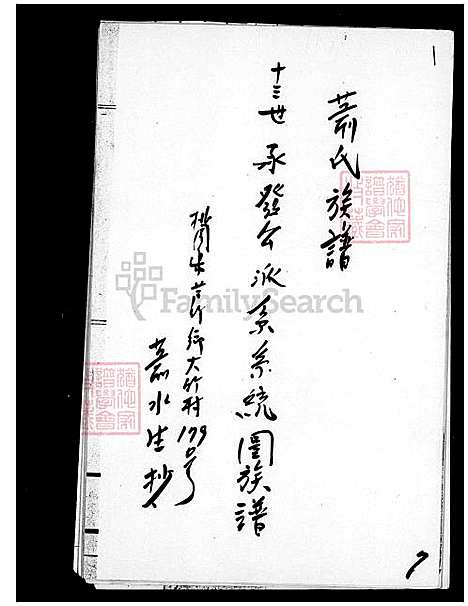 氏族譜
十三世 承發公派系系統圖族譜
芦竹鄉大竹村 199号
水生抄
FamilySearch